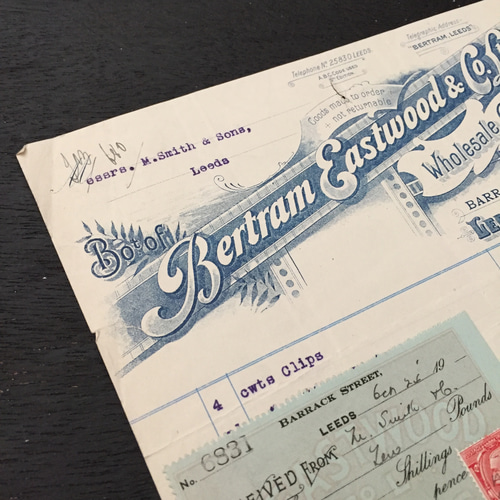 Telephone No 25830 LEEDS.
A.B.C. Code USED
5th EDITION
Telegraphic Address:
"BERTRAM, LEEDS"
Goods made to order
not returnable
Messrs. M.Smith & Sons,
Leeds
Bot. of
Bertram Eastwood & Co.
Wholesale
BARR
4 cwts Clips
BARRACK STREET,
LEEDS
19
No. 6831
EIVED FROM M. Smith
Pounds
Shillings
pence